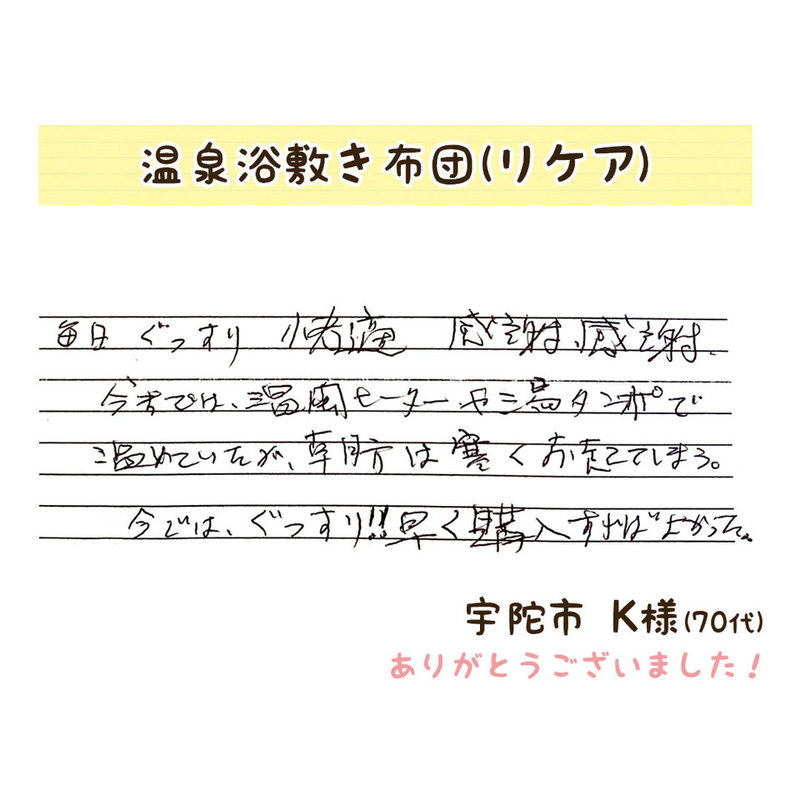 温泉浴敷き布団(リケア)
毎日 ぐっすり 快適 感謝、感謝、
今までは、温風ヒーターや湯タンポで
温めていたが、早朝方は寒くお起てしまう。
今では、ぐっすり!!早く購入すればよかった。
宇陀市 K様(70代)
ありがとうございました!